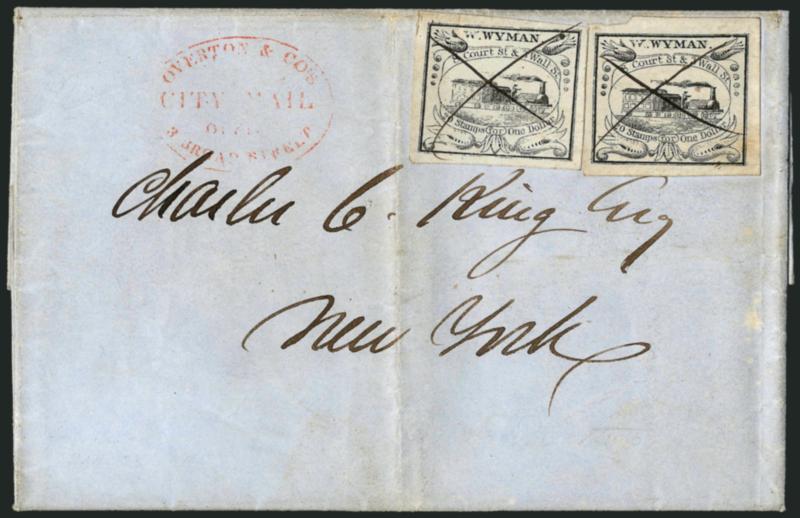 OVERTON & CO'S
CITY MAIL
3 BROAD STREET
W. WYMAN.
8 Court St & 3 Wall St.
20 Stamps for One Dollar
W. WYMAN.
Court St & 3 Wall St.
20 Stamps for One Dollar
Charles C. King Esq
New York